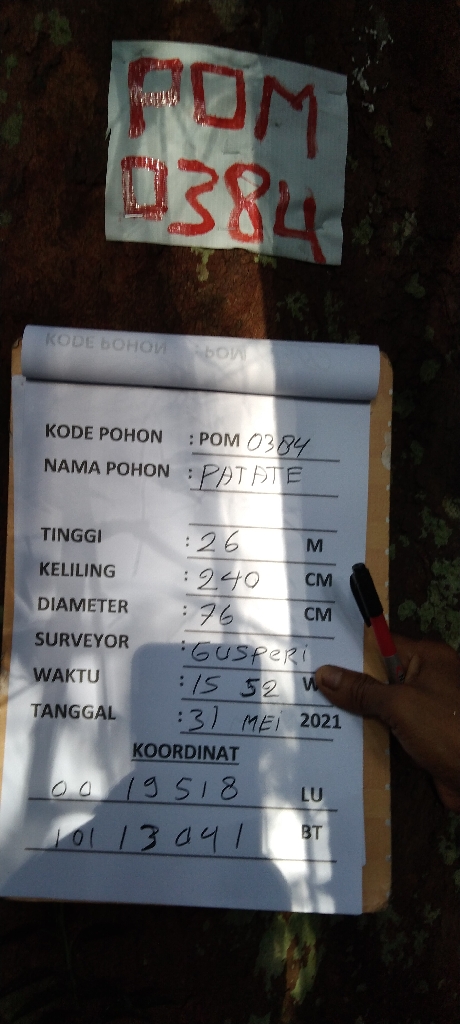 POM
0384
KODE POHON : POM
KODE POHON : POM 0384
NAMA POHON : PATATE
TINGGI : 26 M
KELILING : 240 CM
DIAMETER : 76 CM
SURVEYOR : GUSPERI
WAKTU : 15 52 W
TANGGAL : 31 MEI 2021
KOORDINAT
00 19 518 LU
101 13 041 BT